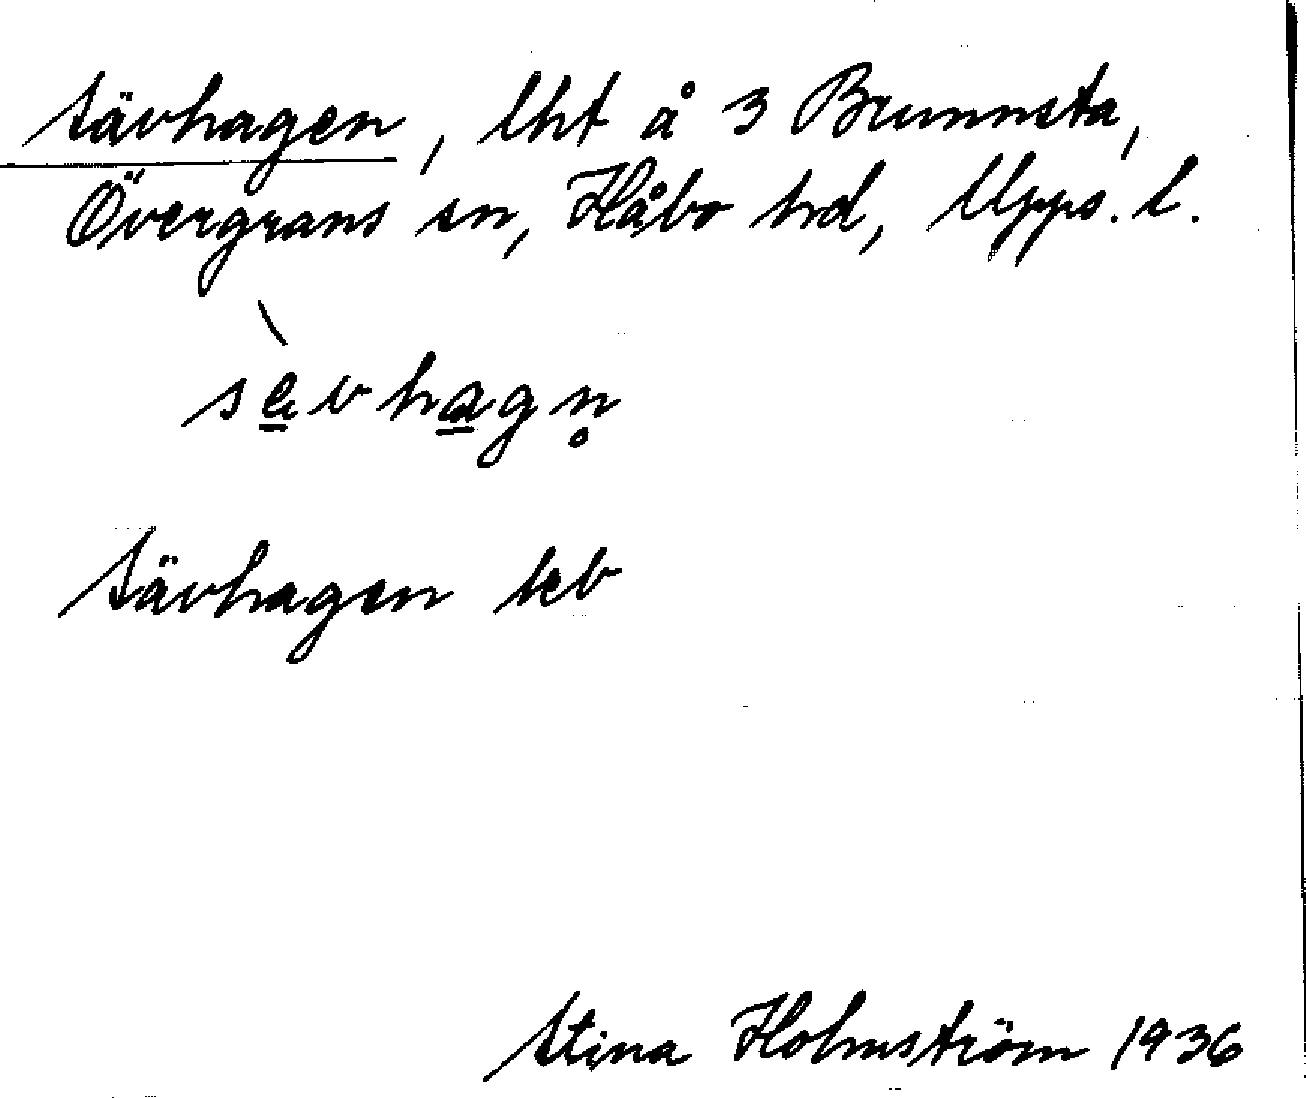 Sävhagen, lht å 3 Brunnsta,
Övergrans sn, Håbo hd, Upps. l.
sè̱vha̱gn̥
Sävhagen keb
Stina Holmström 1936